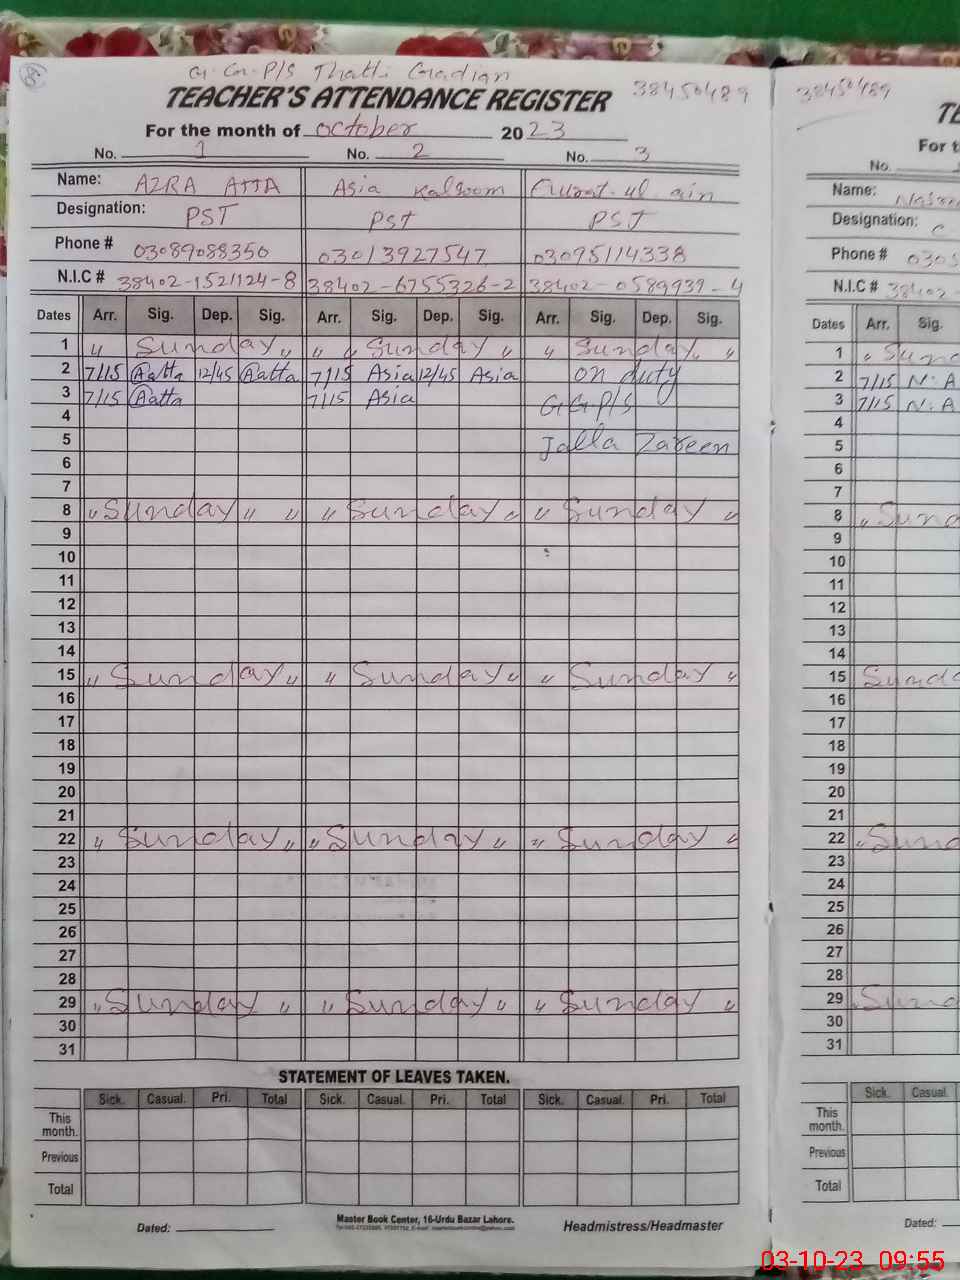 G.G.P/S Thatti Gradian
TEACHER'S ATTENDANCE REGISTER 38450489
For the month of October 2023
No. 1 No. 2 No. 3
Name: AZRA ATTA Asia Kalsoom Qurat-ul-ain
Designation: PST PST PST
Phone # 03089088350 03013927547 03095114338
N.I.C # 38402-1521124-8 38402-6755326-2 38402-0589939-4
Dates Arr. Sig. Dep. Sig. Arr. Sig. Dep. Sig. Arr. Sig. Dep. Sig.
1 " Sunday " " " Sunday " " Sunday "
2 7/15 Aatta 12/45 Aatta 7/15 Asia 12/45 Asia on duty
3 7/15 Aatta 7/15 Asia G.G.P/S
4
5 Jalla Zareen
6
7
8 " Sunday " " " Sunday " " Sunday "
9
10
11
12
13
14
15 " Sunday " " Sunday " " Sunday "
16
17
18
19
20
21
22 " Sunday " " Sunday " " Sunday "
23
24
25
26
27
28
29 " Sunday " " Sunday " " Sunday "
30
31
STATEMENT OF LEAVES TAKEN.
Sick. Casual. Pri. Total Sick. Casual. Pri. Total Sick. Casual. Pri. Total
This month.
Previous
Total
Dated: Master Book Center, 16-Urdu Bazar Lahore. Headmistress/Headmaster
38450489
TE
For t
No.
Name:
Designation: C
Phone # 0305
N.I.C # 38402-
Dates Arr. Sig.
1 " Sund
2 7/15 N.A
3 7/15 N.A
4
5
6
7
8 " Sund
9
10
11
12
13
14
15 Sund
16
17
18
19
20
21
22 " Sund
23
24
25
26
27
28
29 " Sund
30
31
Sick. Casual.
This month.
Previous
Total
Dated:
03-10-23 09:55